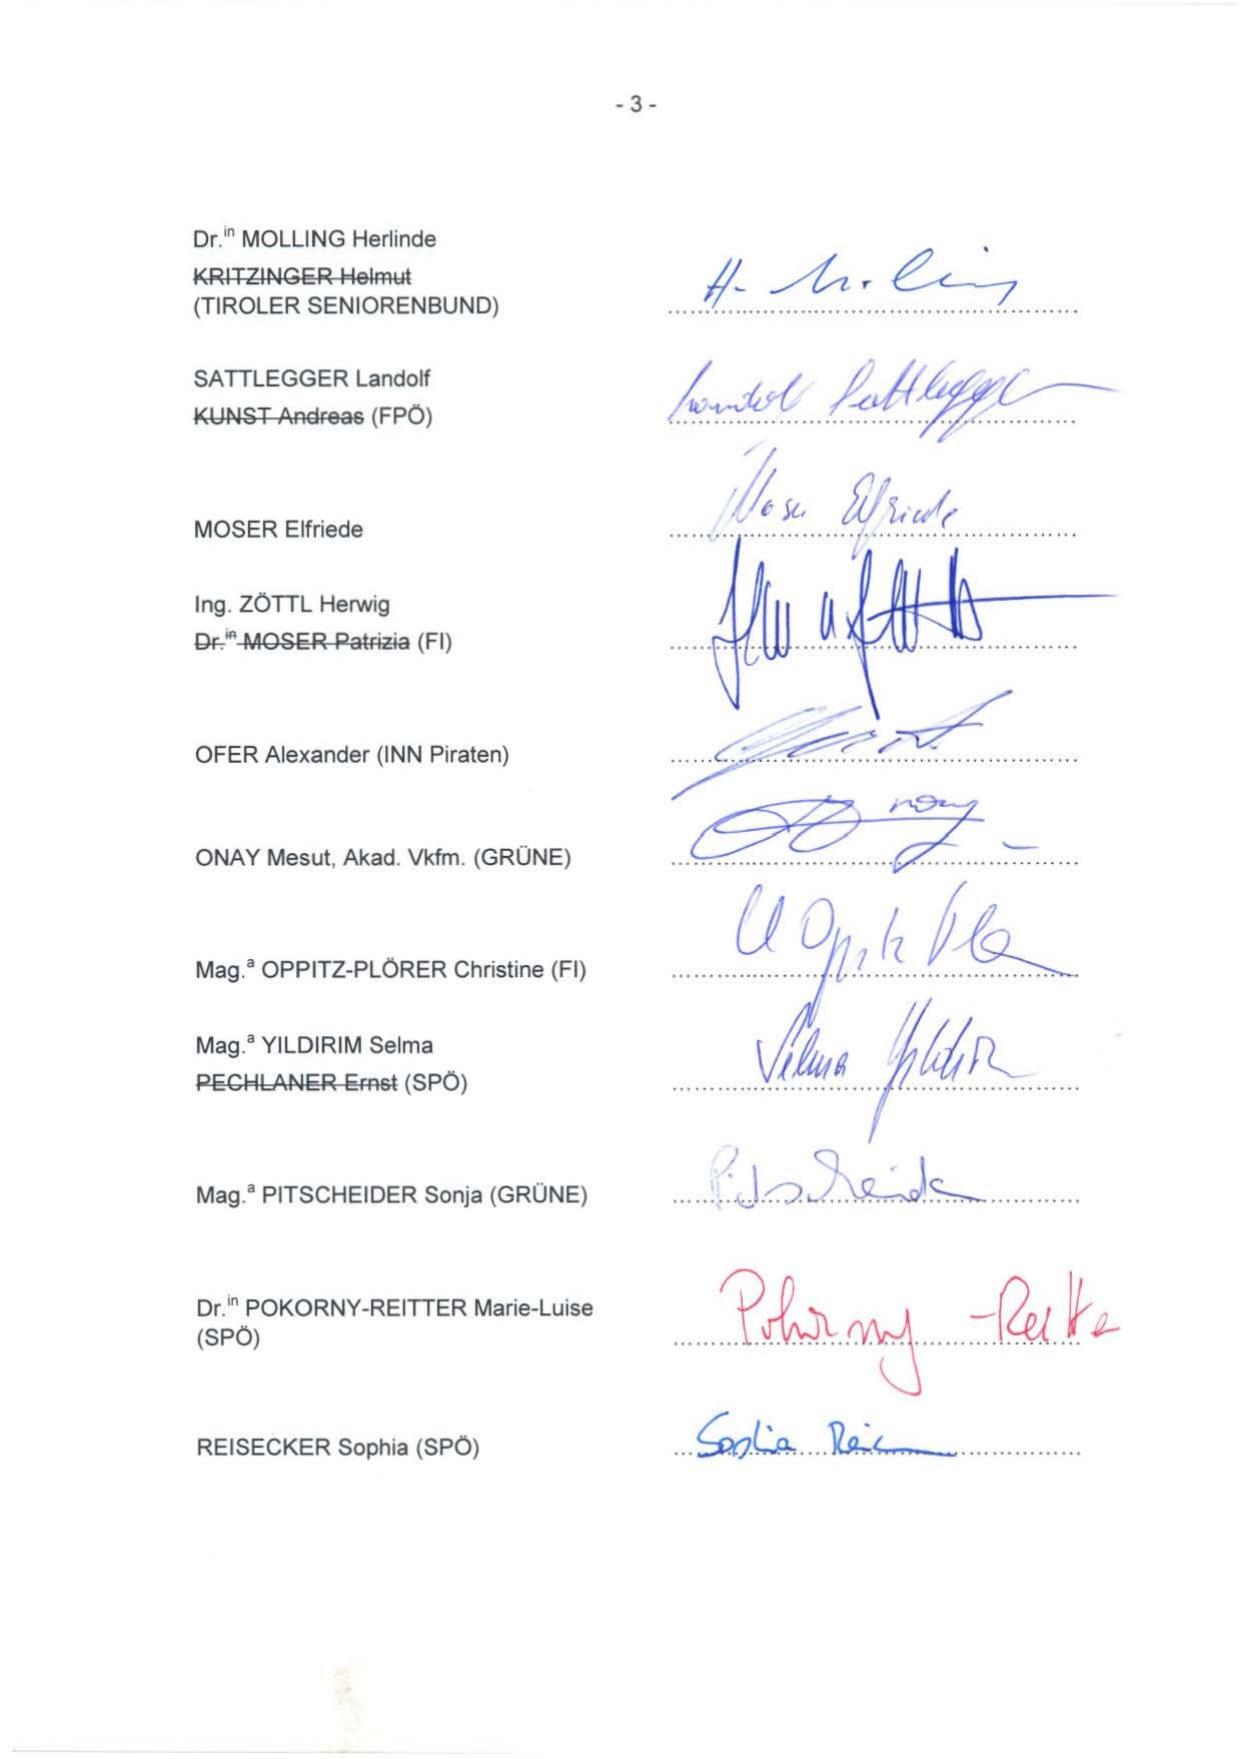 - 3 -
Dr.in MOLLING Herlinde
KRITZINGER Helmut
(TIROLER SENIORENBUND)
H. Molling
SATTLEGGER Landolf
KUNST Andreas (FPÖ)
Landolf Sattlegger
MOSER Elfriede
Moser Elfriede
Ing. ZÖTTL Herwig
Dr.in MOSER Patrizia (FI)
OFER Alexander (INN Piraten)
ONAY Mesut, Akad. Vkfm. (GRÜNE)
Mag.a OPPITZ-PLÖRER Christine (FI)
Mag.a YILDIRIM Selma
PECHLANER Ernst (SPÖ)
Selma Yildirim
Mag.a PITSCHEIDER Sonja (GRÜNE)
Pitscheider
Dr.in POKORNY-REITTER Marie-Luise
(SPÖ)
Pokorny-Reitter
REISECKER Sophia (SPÖ)
Sophia